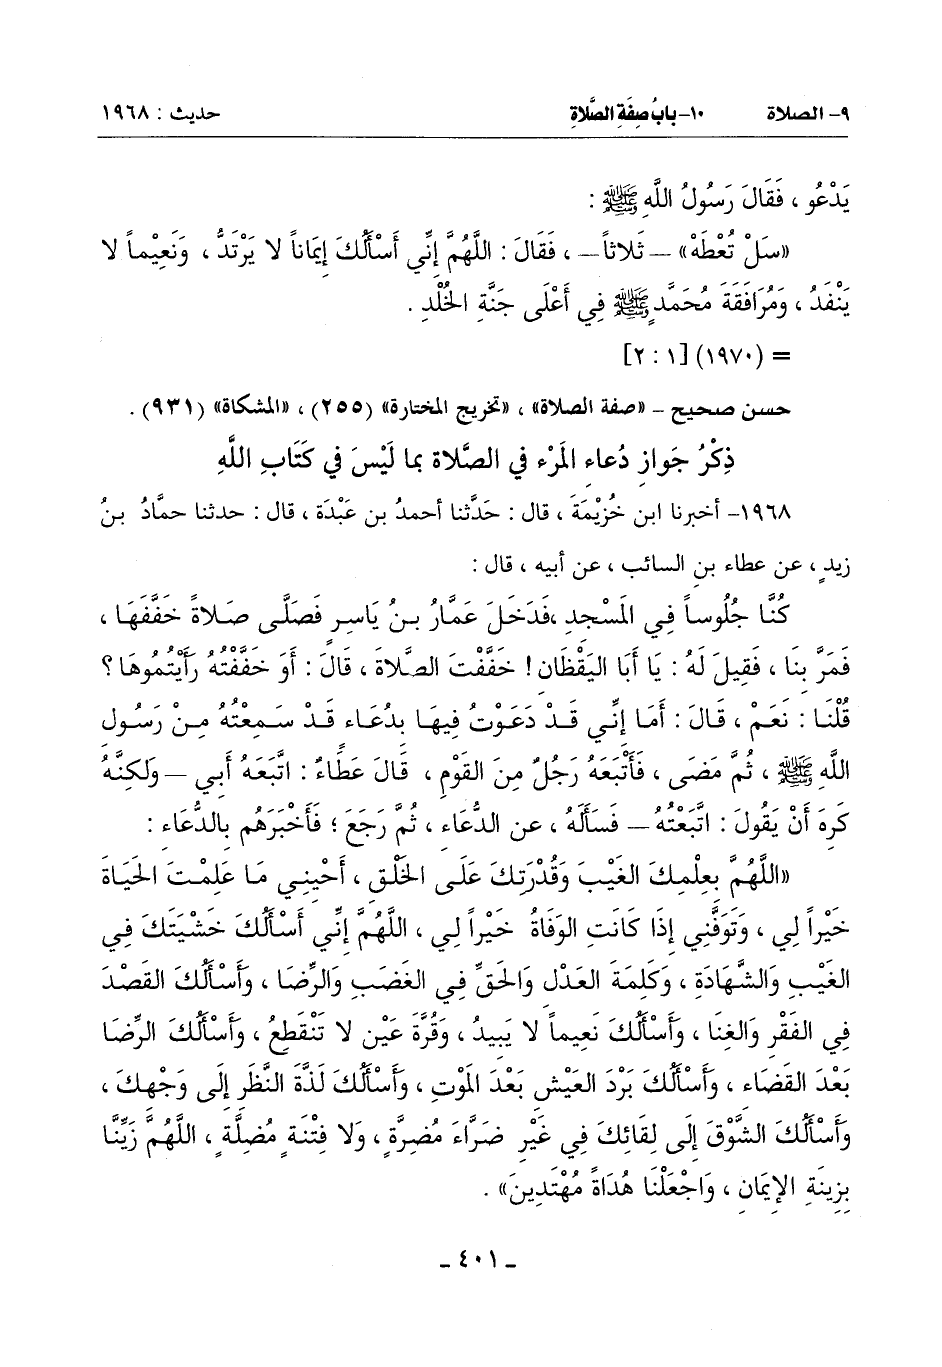 ٩- الصلاة ١٠- بابُ صِفَةِ الصَّلاةِ حديث : ١٩٦٨
يَدْعُو ، فَقَالَ رَسُولُ اللَّهِ ﷺ :
«سَلْ تُعْطَهْ» — ثَلاثاً— ، فَقَالَ : اللَّهُمَّ إِنِّي أَسْأَلُكَ إِيمَاناً لا يَرْتَدُّ ، وَنَعِيْماً لا
يَنْفَدُ ، وَمُرَافَقَةَ مُحَمَّدٍ ﷺ فِي أَعْلَى جَنَّةِ الخُلْدِ .
= (١٩٧٠) [١ : ٢]
حسن صحيح – «صفة الصلاة» ، «تخريج المختارة» (٢٥٥) ، «المشكاة» (٩٣١) .
ذِكْرُ جَوازِ دُعاءِ المَرْءِ في الصَّلاةِ بما لَيْسَ في كَتَابِ اللَّهِ
١٩٦٨- أخبرنا ابن خُزَيْمَةَ ، قال : حَدَّثنا أحمدُ بن عَبْدَة ، قال : حدثنا حمَّادُ بنُ
زيدٍ ، عن عطاء بن السائب ، عن أبيه ، قال :
كُنَّا جُلُوساً فِي المَسْجِدِ ،فَدَخَلَ عَمَّارُ بـنُ يَاسِرٍ فَصَلَّى صَلاةً خَفَّفَهَا ،
فَمَرَّ بنَا ، فَقِيلَ لَهُ : يَا أَبَا اليَقْظَان! خَفَّفْتَ الصَّلاةَ ، قَالَ : أَوَ خَفَّفْتُهُ رَأَيْتُموهَا ؟
قُلْنَا : نَعَمْ ، قَالَ : أَمَا إِنِّي قَدْ دَعَوْتُ فِيهَا بِدُعَاءٍ قَدْ سَمِعْتُهُ مِنْ رَسُولِ
اللَّهِ ﷺ ، ثُمَّ مَضَى ، فَأَتْبَعَهُ رَجُلٌ مِنَ القَوْمِ ، قَالَ عَطَاءٌ : اتَّبَعَهُ أَبِي —وَلكِنَّهُ
كَرِهَ أَنْ يَقُولَ : اتَّبَعْتُهُ— فَسأَلَهُ ، عن الدُّعَاءِ ، ثُمَّ رَجَعَ ؛ فَأَخْبَرَهُم بِالدُّعَاءِ :
«اللَّهُمَّ بِعِلْمِكَ الغَيْبَ وَقُدْرَتِكَ عَلَى الخَلْقِ ، أَحْيِنِي مَا عَلِمْتَ الحَيَاةَ
خَيْراً لِي ، وَتَوَفَّنِي إِذَا كَانَتِ الوَفَاةُ خَيْراً لِي ، اللَّهُمَّ إِنِّي أَسْأَلُكَ خَشْيَتَكَ فِي
الغَيْبِ وَالشَّهَادَةِ ، وَكَلِمَةَ العَدْلِ وَالحَقِّ فِي الغَضَبِ وَالرِّضَا ، وَأَسْأَلُكَ القَصْدَ
فِي الفَقْرِ وَالغِنَا ، وَأَسْأَلُكَ نَعِيماً لا يَبِيدُ ، وَقُرَّةَ عَيْنٍ لا تَنْقَطِعُ ، وَأَسْأَلُكَ الرِّضَا
بَعْدَ القَضَاءِ ، وَأَسْأَلُكَ بَرْدَ العَيْشِ بَعْدَ المَوْتِ ، وَأَسْأَلُكَ لَذَّةَ النَّظَرِ إِلَى وَجْهِكَ ،
وَأَسْأَلُكَ الشَّوْقَ إِلَى لِقَائِكَ فِي غَيْرِ ضَرَّاءَ مُضِرَّةٍ ، وَلا فِتْنَةٍ مُضِلَّةٍ ، اللَّهُمَّ زَيِّنَّا
بِزِينَةِ الإِيمَانِ ، وَاجْعَلْنَا هُدَاةً مُهْتَدِينَ» .
ـ ٤٠١ ـ